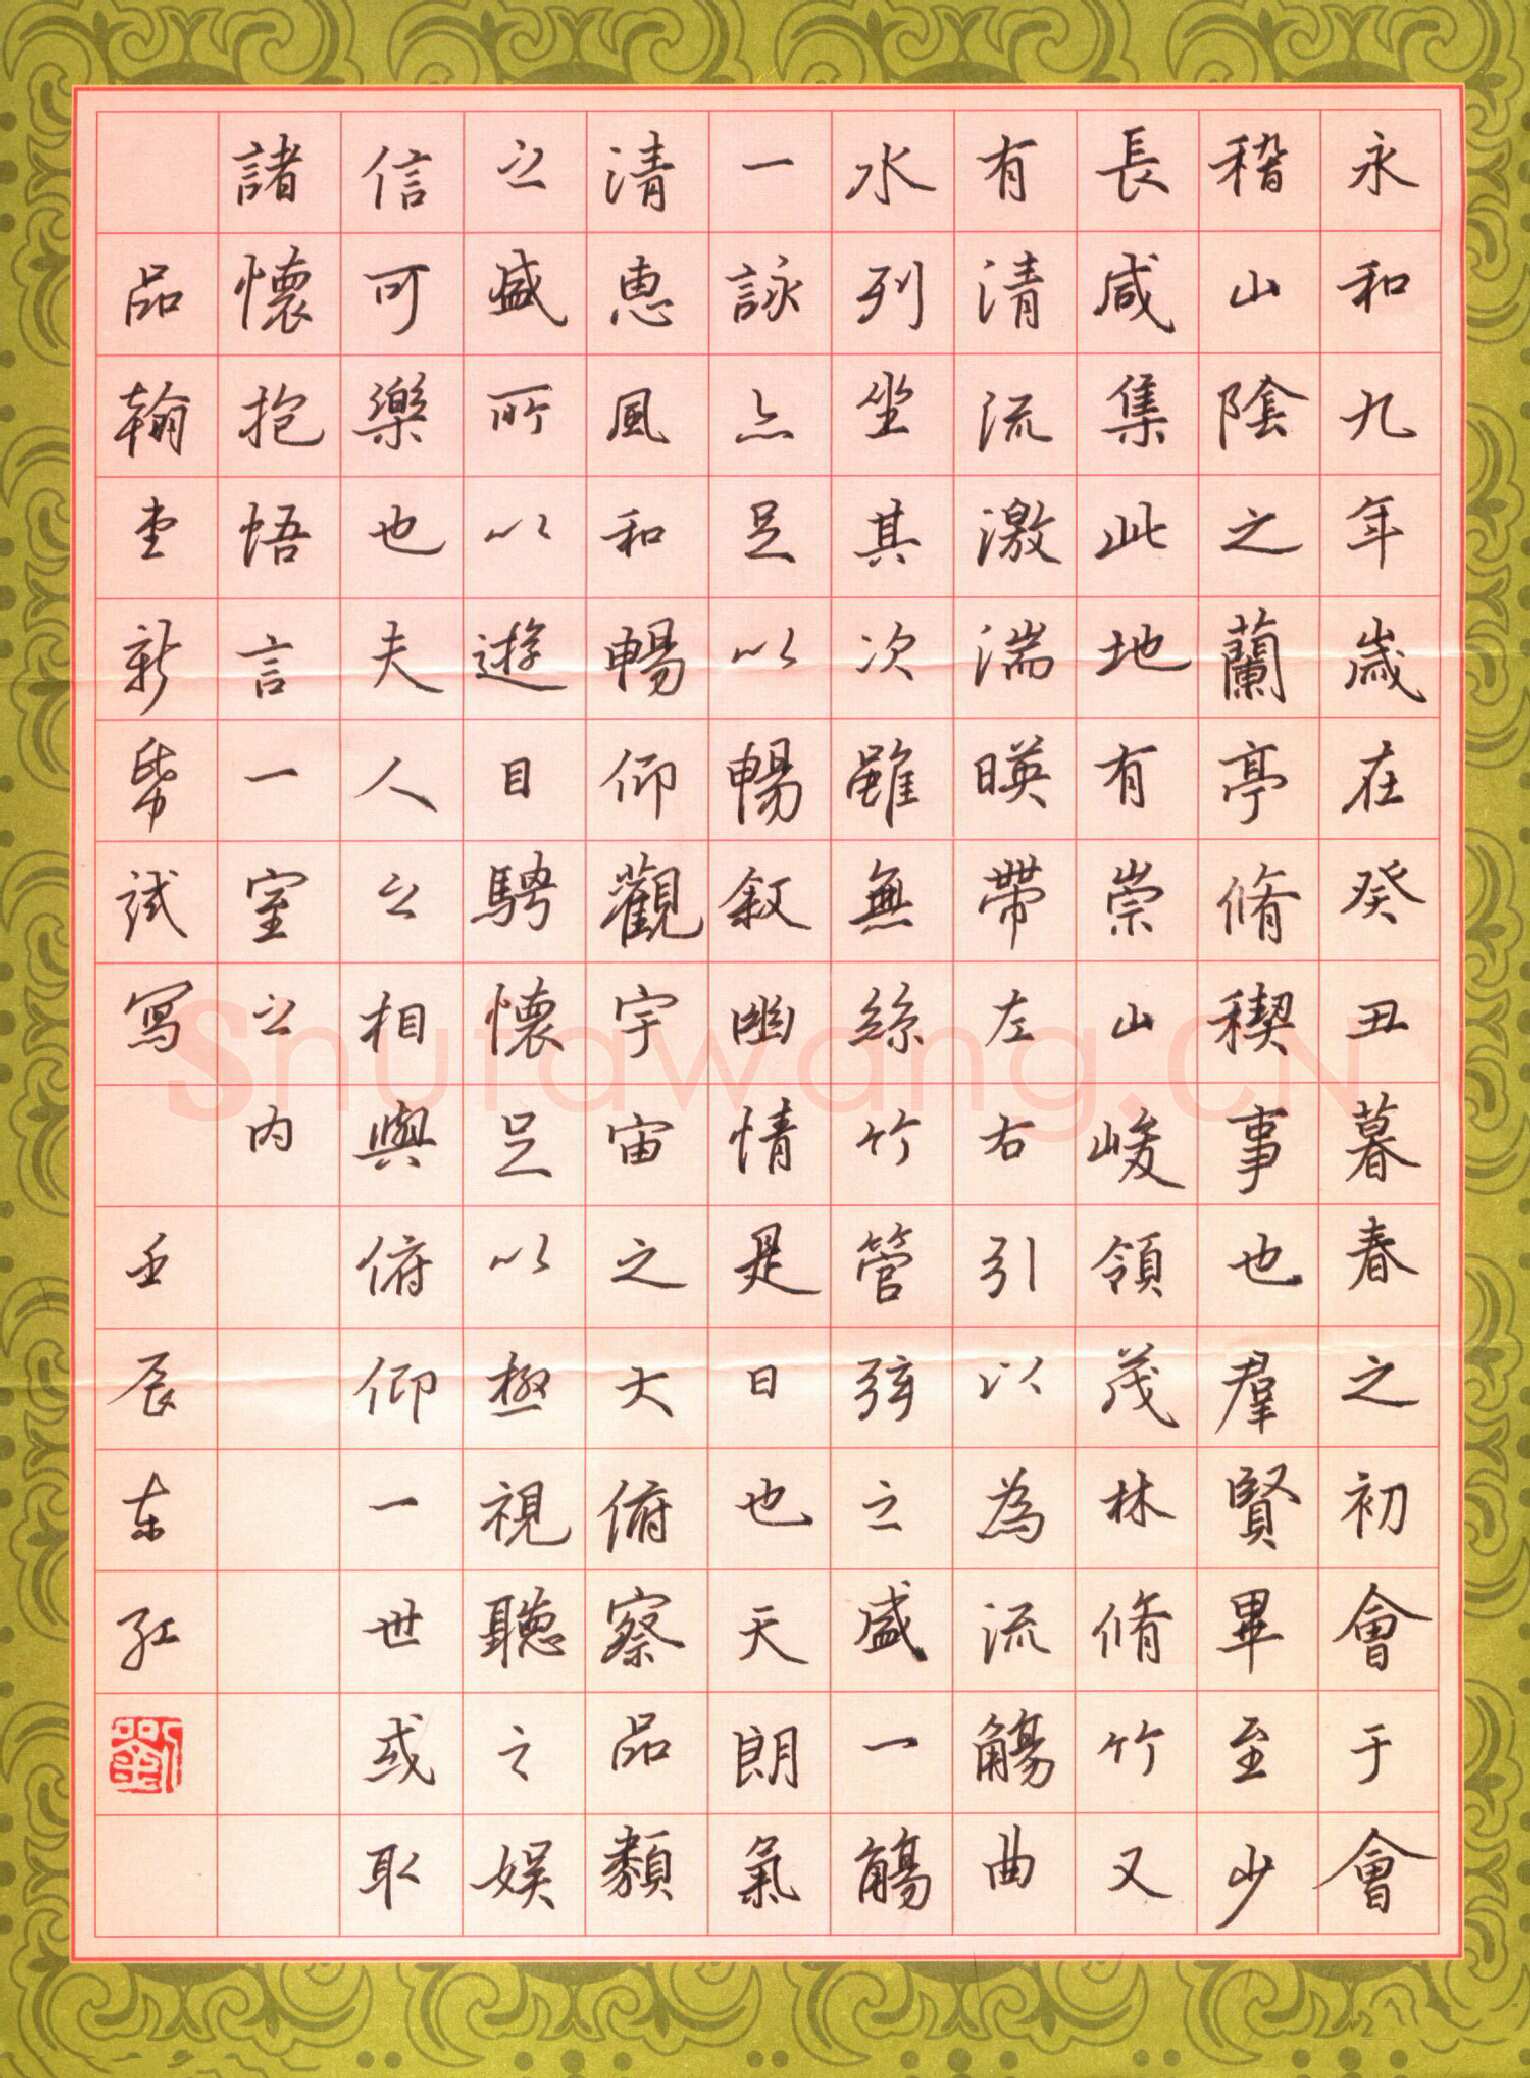 永和九年歲在癸丑暮春之初會于會
稽山陰之蘭亭脩稧事也羣賢畢至少
長咸集此地有崇山峻領茂林脩竹又
有清流激湍暎帶左右引以為流觴曲
水列坐其次雖無絲竹管弦之盛一觴
一詠亦足以暢敘幽情是日也天朗氣
清惠風和暢仰觀宇宙之大俯察品類
之盛所以遊目騁懷足以極視聽之娛
信可樂也夫人之相與俯仰一世或取
諸懷抱悟言一室之內
品翰堂新帋試寫 壬辰东红
劉
Shufawang.CN